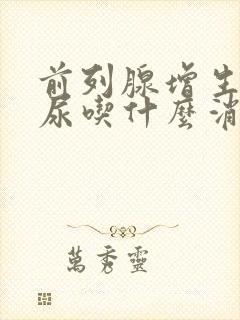 前列腺增生
尿喫什麼消
萬秀靈